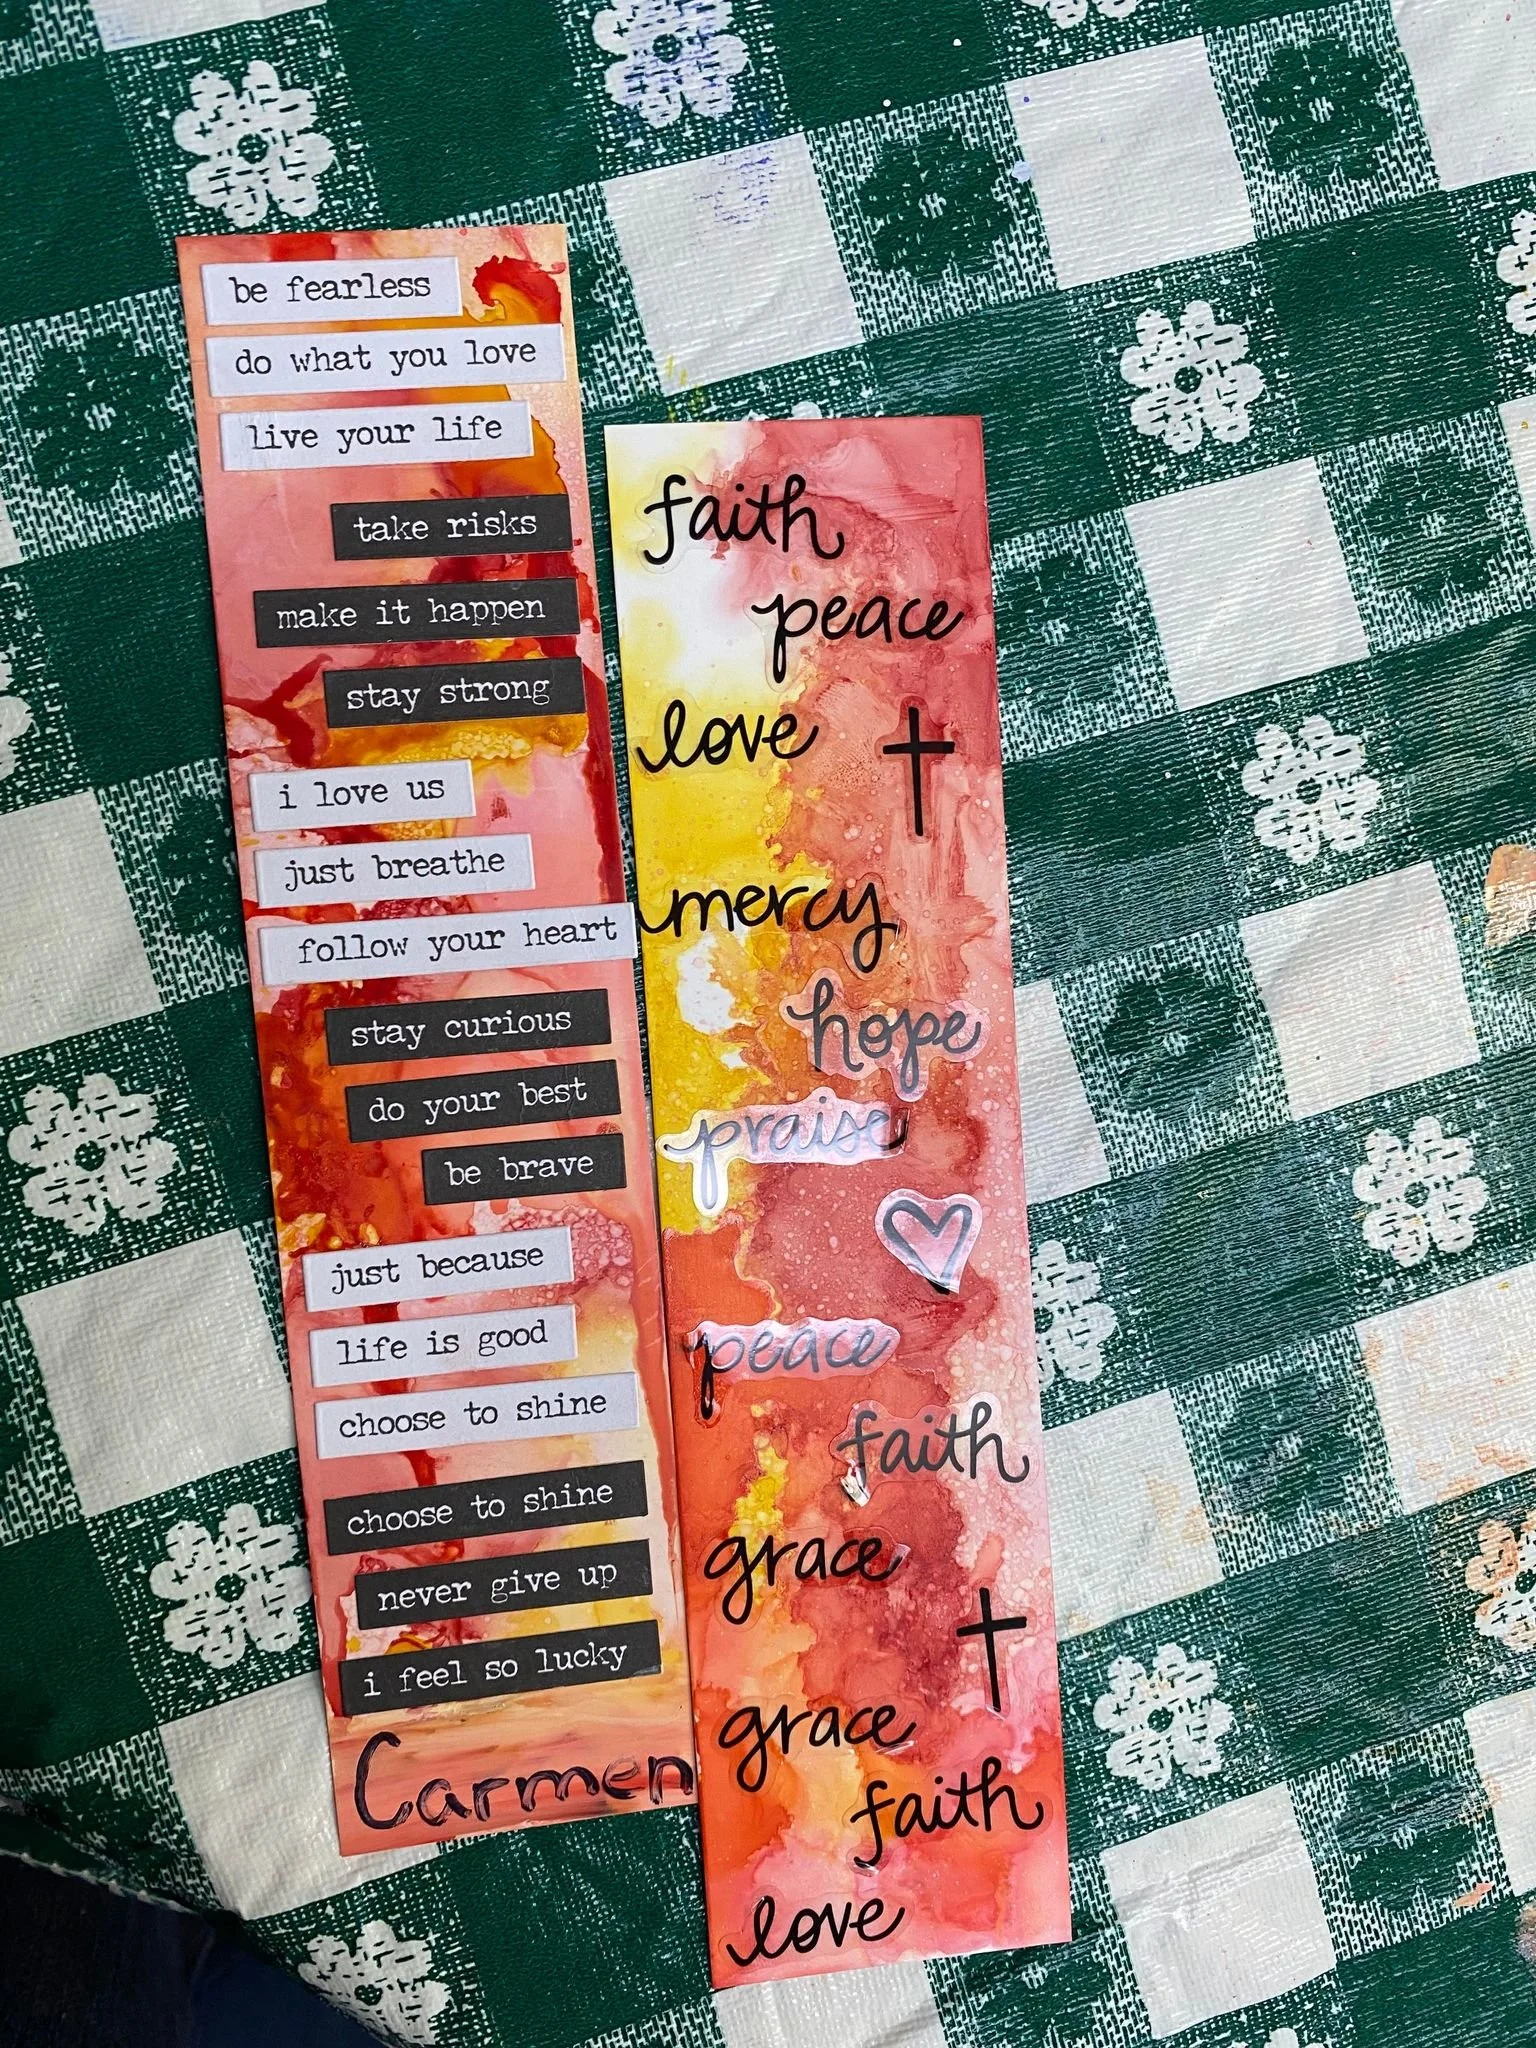 be fearless
do what you love
live your life
take risks
make it happen
stay strong
i love us
just breathe
follow your heart
stay curious
do your best
be brave
just because
life is good
choose to shine
choose to shine
never give up
i feel so lucky
Carmen
faith
peace
love
mercy
hope
praise
peace
faith
grace
grace
faith
love